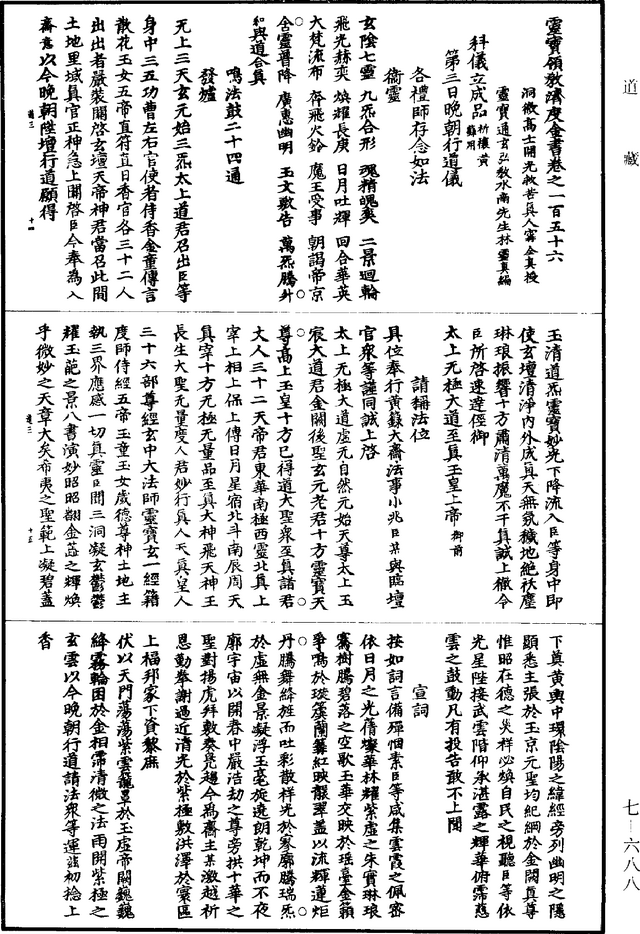 道藏
靈寶領教濟度金書卷之一百五十六
洞微高士開光救苦真人甯全真授
靈寶通玄弘教水南先生林靈真編
科儀立成品祈禳黃籙用
第三日晚朝行道儀
各禮師存念如法
衛靈
玄陰七靈　九炁合形　魂精魄爽　二景迴輪
飛光赫奕　煥耀長庚　日月吐輝　回合華英
大梵流布　奔飛火鈴　魔王受事　朝謁帝京
含靈普降　廣惠幽明　玉文敷告　萬炁騰升
和與道合真
鳴法鼓二十四通
發爐
无上三天玄元始三炁太上道君召出臣等
身中三五功曹左右官使者侍香金童傳言
散花玉女五帝直符直日香官各三十二人
出出者嚴裝關啓玄壇天帝神君當召此間
土地里域真官正神急上關啓臣今奉為入
齋意以今晚朝陞壇行道願得
道三　十四
玉清道炁靈寶妙光下降流入臣等身中即
使玄壇清淨內外成真天無氛穢地絕祅塵
琳琅振響十方肅清萬魔不干真誠上徹令
臣所啓速達徑御
太上无極大道至真玉皇上帝御前
請稱法位
具位奉行黃籙大齋法事小兆臣某與臨壇
官衆等謹同誠上啓
太上无極大道虛无自然元始天尊太上玉
宸大道君金闕後聖玄元老君十方靈寶天
尊高上玉皇十方已得道大聖衆至真諸君
丈人三十二天帝君東華南極西靈北真上
宰上相上保上傅日月星宿北斗南辰周天
真宰十方无極无量品至真大神飛天神王
長生大聖无量度人君妙行真人天真皇人
三十六部尊經玄中大法師靈寶玄一經籍
度師侍經五帝玉童玉女歲德尊神土地主
執三界應感一切真靈臣聞三洞凝玄鬱鬱
耀玉葩之景八書演妙昭昭翻金蘂之輝煥
乎微妙之天章大矣希夷之聖範上凝碧蓋
道三　十五
下奠黃輿中環陰陽之緯經旁列幽明之隱
顯悉主張於玉京元聖均紀綱於金闕真尊
惟昭在德之災祥必煥自民之視聽臣等依
光星陛接武雲階仰承湛露之輝華俯霈慈
雲之鼓動凡有投告敢不上聞
宣詞
按如詞言備殫悃素臣等咸集雲霞之佩密
依日月之光蒨燦華林耀紫虛之朱實琳琅
騫樹騰碧落之空歌玉華交映於瑤臺金籟
爭鳴於琁簴蘭籌紅映靉翠蓋以流輝蓮炬
丹騰舞絳旌而吐彩散祥光於寥廓騰瑞炁
於虛無金景凝浮玉毫旋遶朗乾坤而不夜
廓宇宙以開春中嚴浩劫之尊旁拱十華之
聖對揚虎拜敷奏鳧趨今為齋主某激越祈
恩動拳謝過近清光於紫極敷洪澤於寰區
上福邦家下資黎庶
伏以天門蕩蕩紫雲靉覃於玉虛帝闕巍巍
絳霧輪囷於金相霈清微之法雨開紫極之
玄雲以今晚朝行道請法衆等運茲初捻上
香
七－六八八